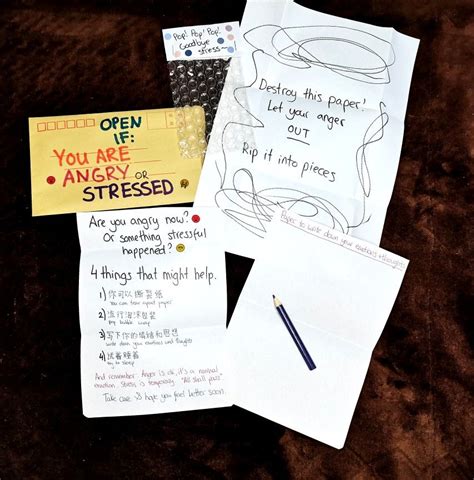 Pop! Pop! Pop!
Goodbye
stress~
OPEN
IF:
YOU ARE
ANGRY OR
STRESSED
Destroy this paper!
Let your anger
OUT
Rip it into pieces
Are you angry now?
Or something stressful
happened?
4 things that might help.
1) 你可以撕裂纸
You can tear up paper
2) 流行泡沫包装
pop bubble wrap
3) 写下你的情绪和思想
write down your emotions and thoughts
4) 试着睡着
try to sleep
And remember: Anger is ok, it's a normal
emotion. Stress is temporary. "All shall pass"
Take care hope you feel better soon.
Paper to write down your emotions + thoughts